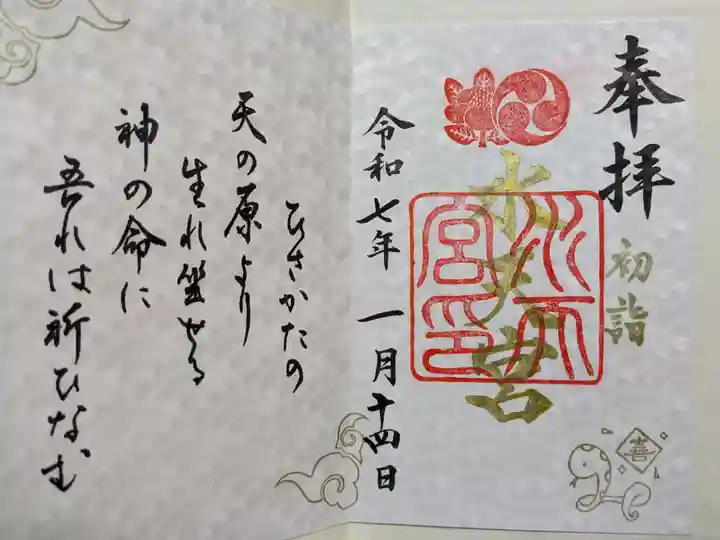 奉拝
初詣
水天宮
水天宮印
令和七年 一月十四日
喜
ひさかたの
天の原より
生れ坐せる
神の命に
吾れは祈ひなむ